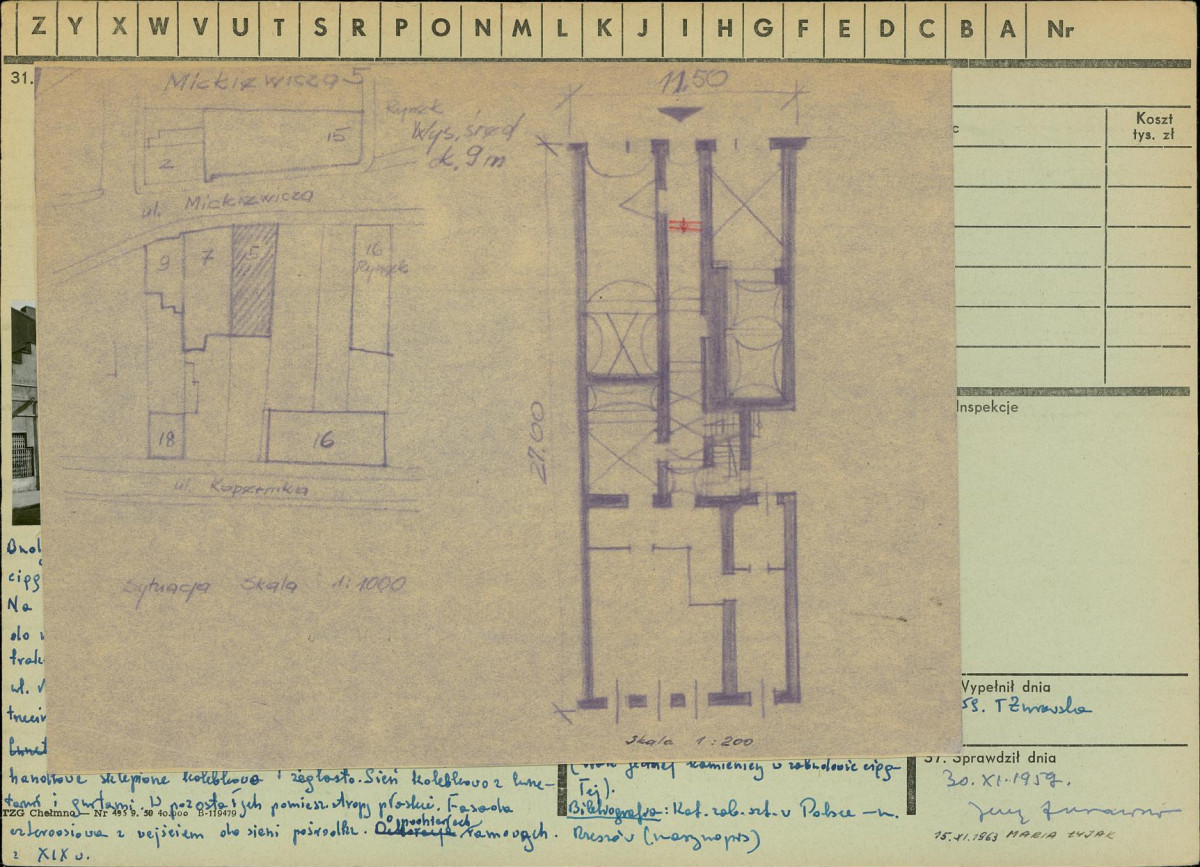 Z Y X W V U T S R P O N M L K J I H G F E D C B A Nr
31.
Mickiewicza 5
Rynek
Wys. śred
ok. 9 m
15
2
ul. Mickiewicza
9 7 5 16
Rynek
18 16
ul. Kopernika
Sytuacja Skala 1:1000
11,50
27,60
Skala 1:200
c
Koszt
tys. zł
Inspekcje
Wypełnił dnia
59. T Żurawska
37. Sprawdził dnia
30.XI.1959.
Jerzy Żurawski
15.XI.1963 MARIA ŁYJAK
Na
do
ul.
handlowe sklepione kolebkowo i żeglasto. Sień kolebkowo z lune-
tami i gurtami. W pozostałych pomieszcz. stropy płaskie. Fasada
TZG Chełmno — Nr 495 9. 50 40.000 B-119479
czteroosiowa z wejściem do sieni pośrodku. O ramowych.
z XIX w.
jednej kamienicy w zabudowie cią-
łej).
Bibliografia: Kat. zab. szt. w Polsce – m.
Rzeszów (maszynopis)